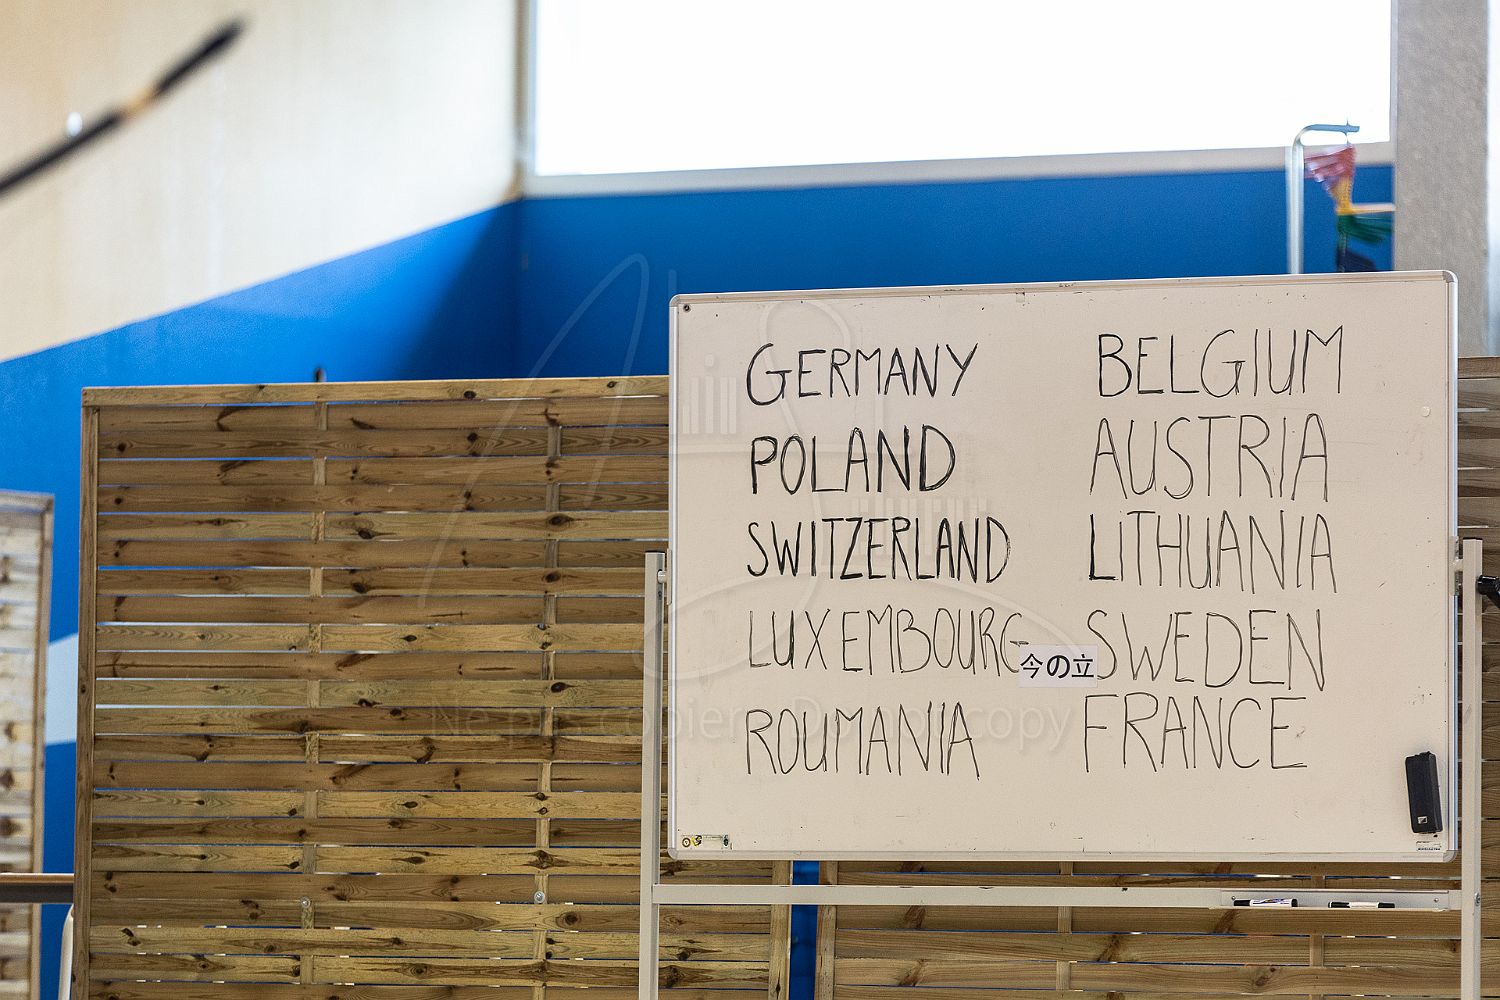 GERMANY
POLAND
SWITZERLAND
LUXEMBOURG
ROUMANIA
BELGIUM
AUSTRIA
LITHUANIA
SWEDEN
FRANCE
今の立
Ne pas copier Do not copy